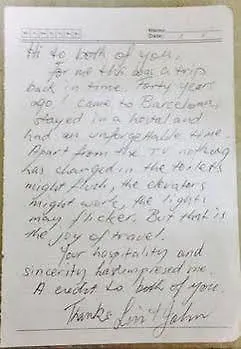 Memo:
Date:
Hi to both of you.
For me this was a trip
back in time. Forty years
ago I came to Barcelona,
stayed in a hostal and
had an unforgettable time.
Apart from the TV nothing
has changed in the toilets
might flush, the elevators
might work, the lights
may flicker. But that is
the joy of travel.
Your hospitality and
sincerity has impressed me.
A credit to both of you.
Thanks & John